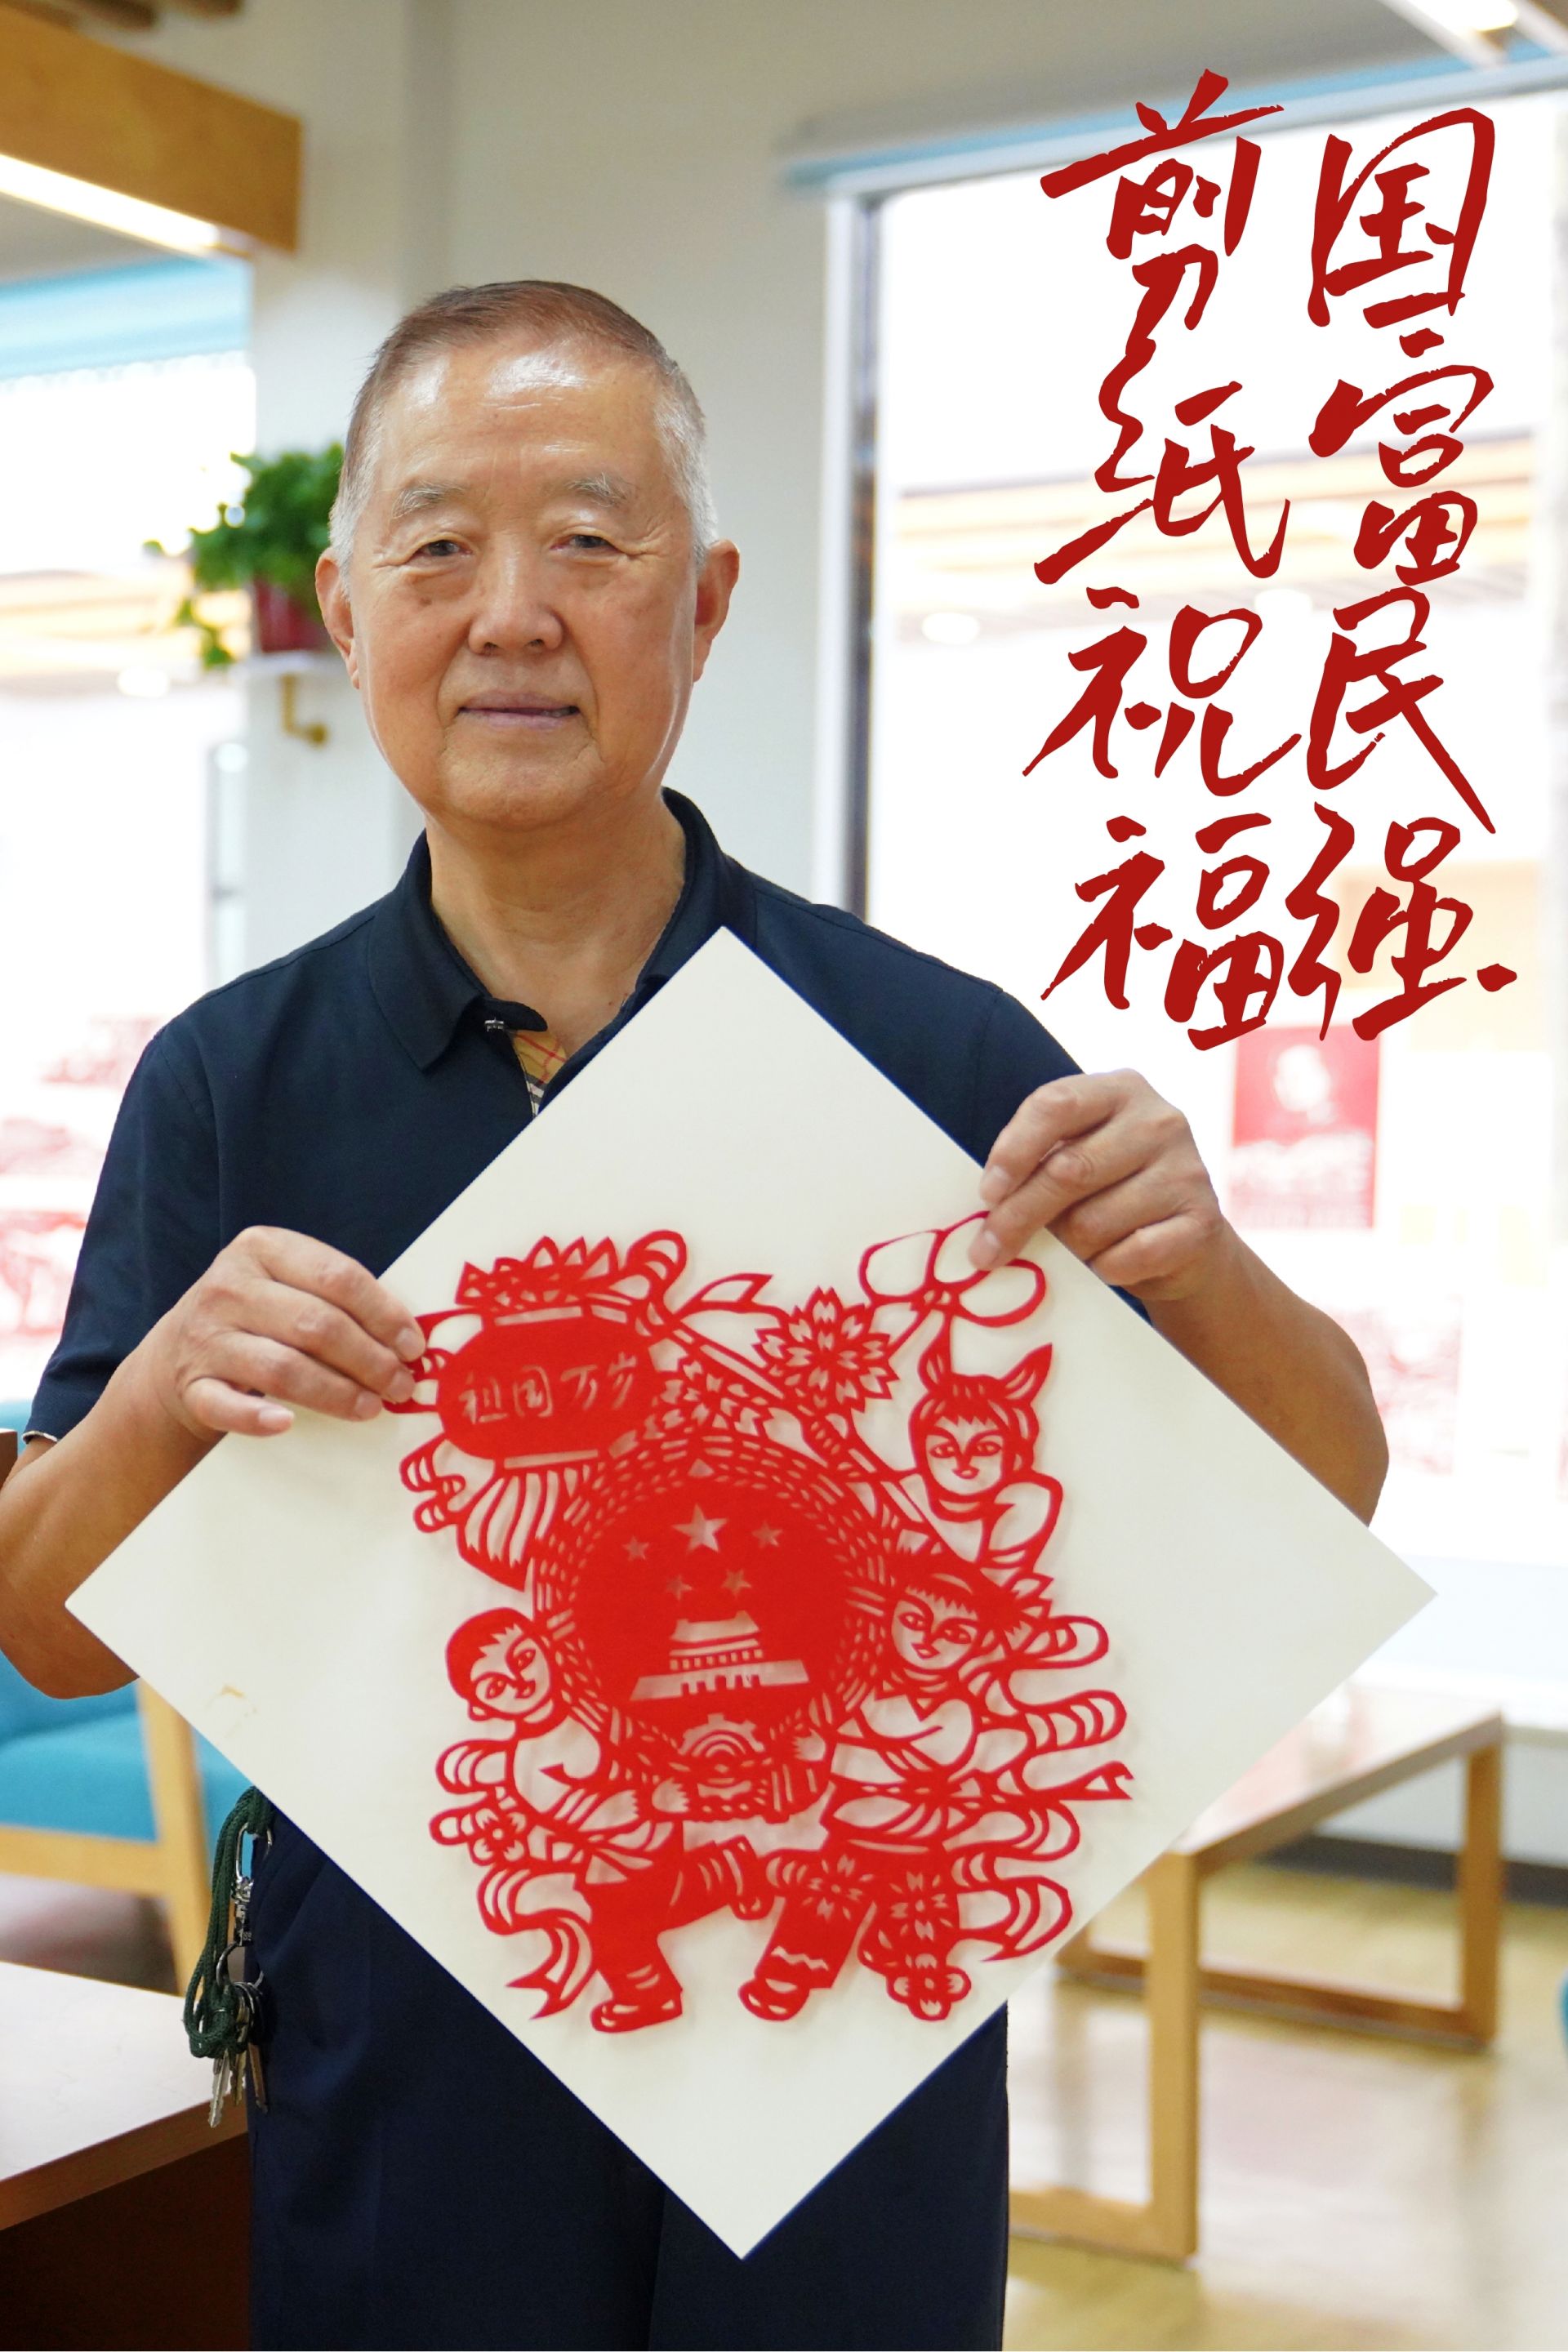 国富民强
剪纸祝福
祖国万岁